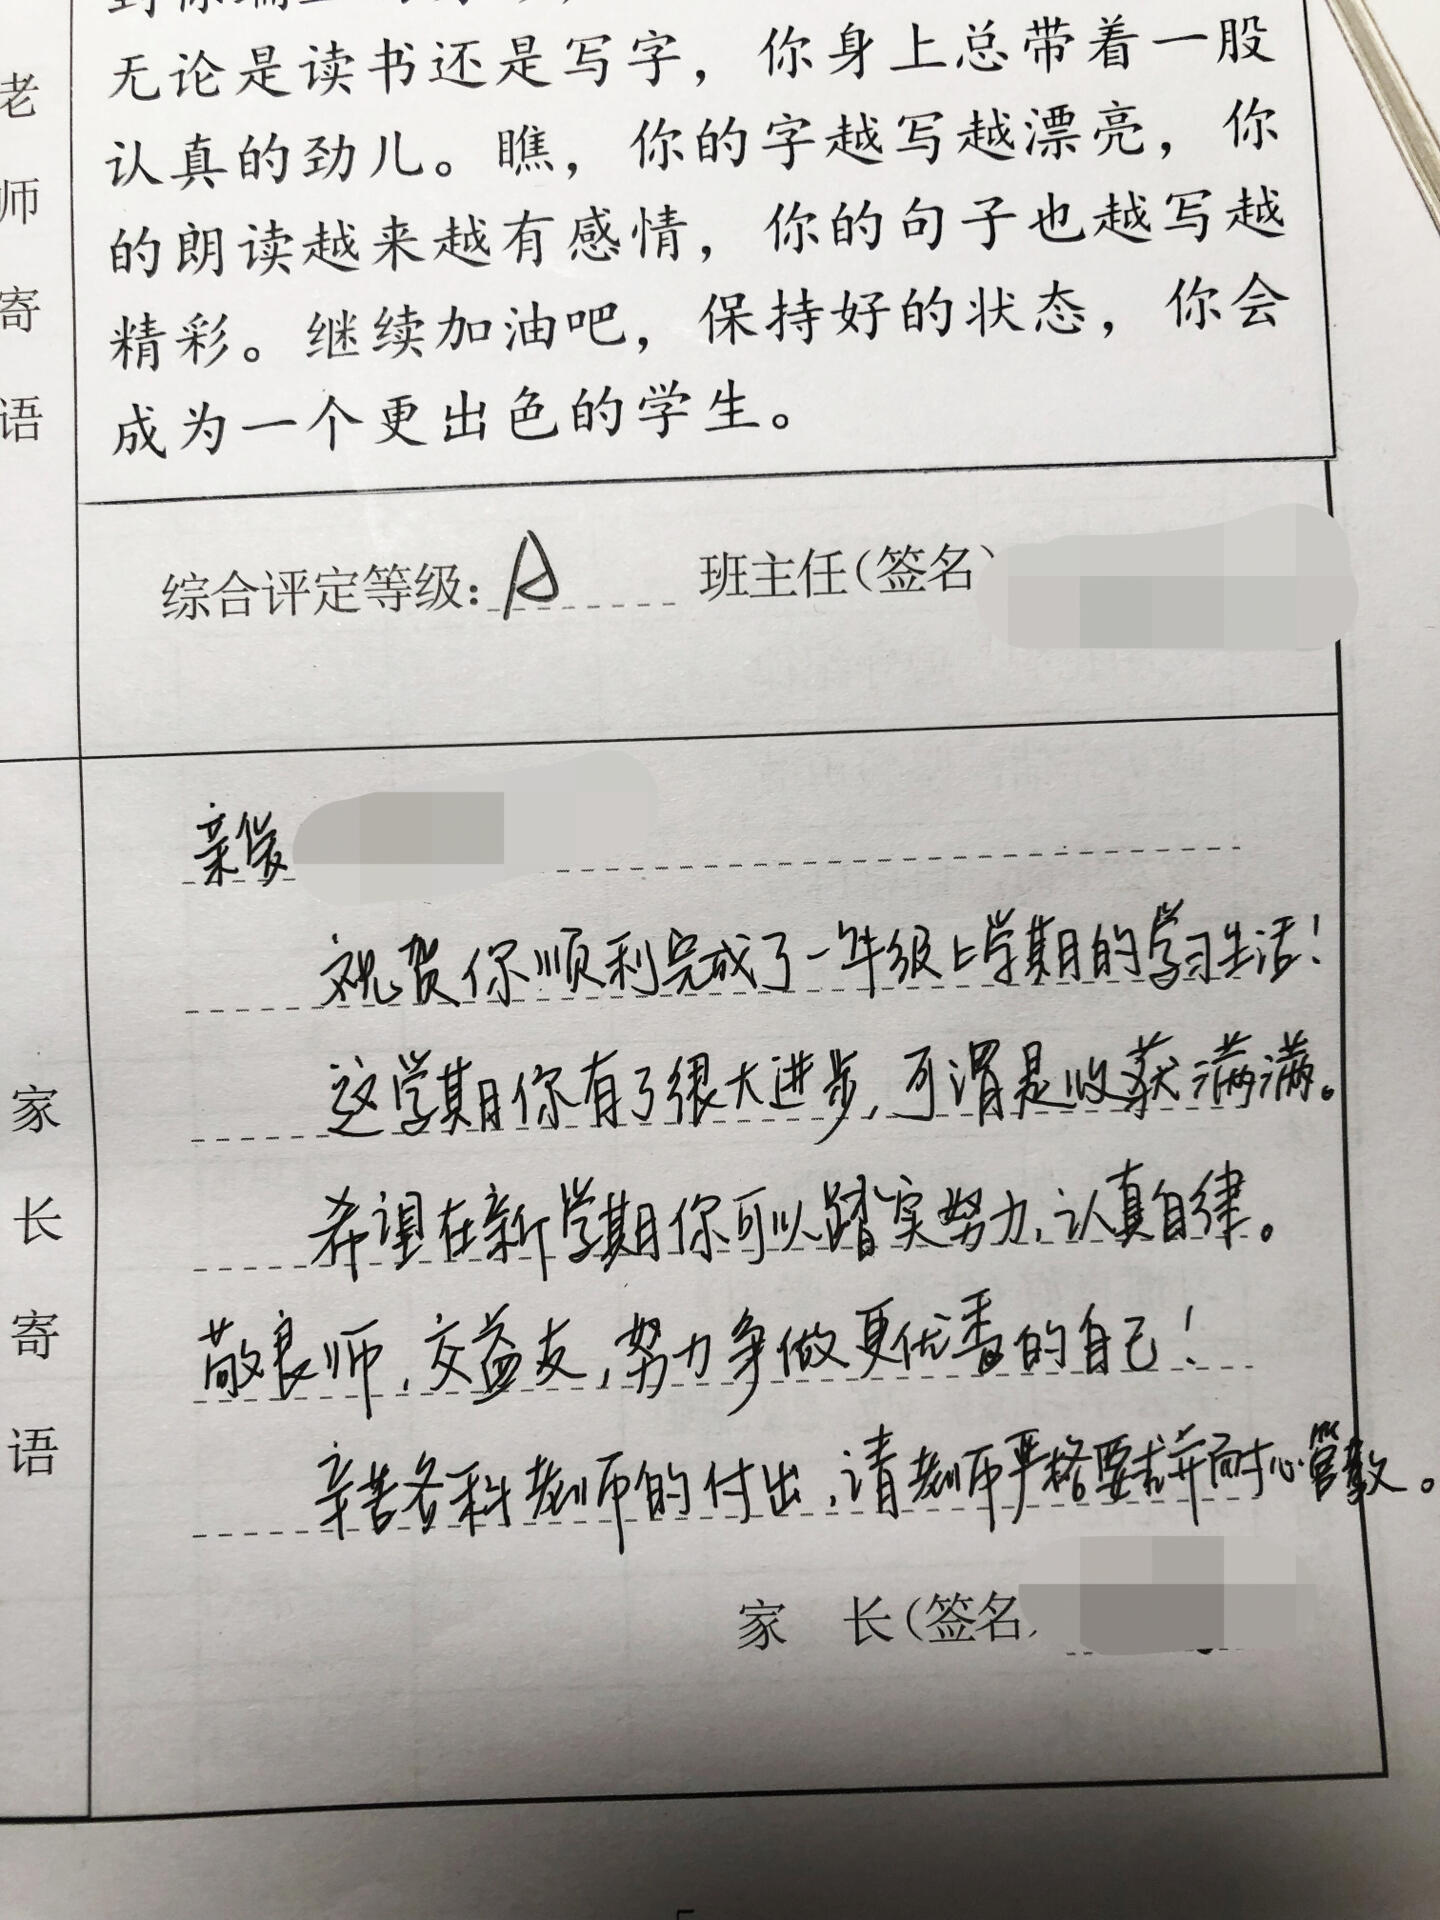 老师寄语
无论是读书还是写字，你身上总带着一股
认真的劲儿。瞧，你的字越写越漂亮，你
的朗读越来越有感情，你的句子也越写越
精彩。继续加油吧，保持好的状态，你会
成为一个更出色的学生。
综合评定等级：A 班主任（签名）
家长寄语
亲爱
祝贺你顺利完成了一年级上学期的学习生活！
这学期你有了很大进步，可谓是收获满满。
希望在新学期你可以踏实努力、认真自律。
敬良师，交益友，努力争做更优秀的自己！
辛苦各科老师的付出，请老师严格要求并耐心管教。
家 长（签名